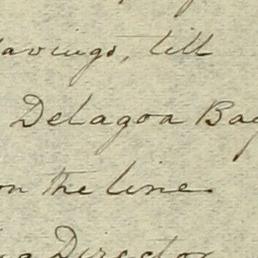 till
Delagoa Bay
on the line.
Director